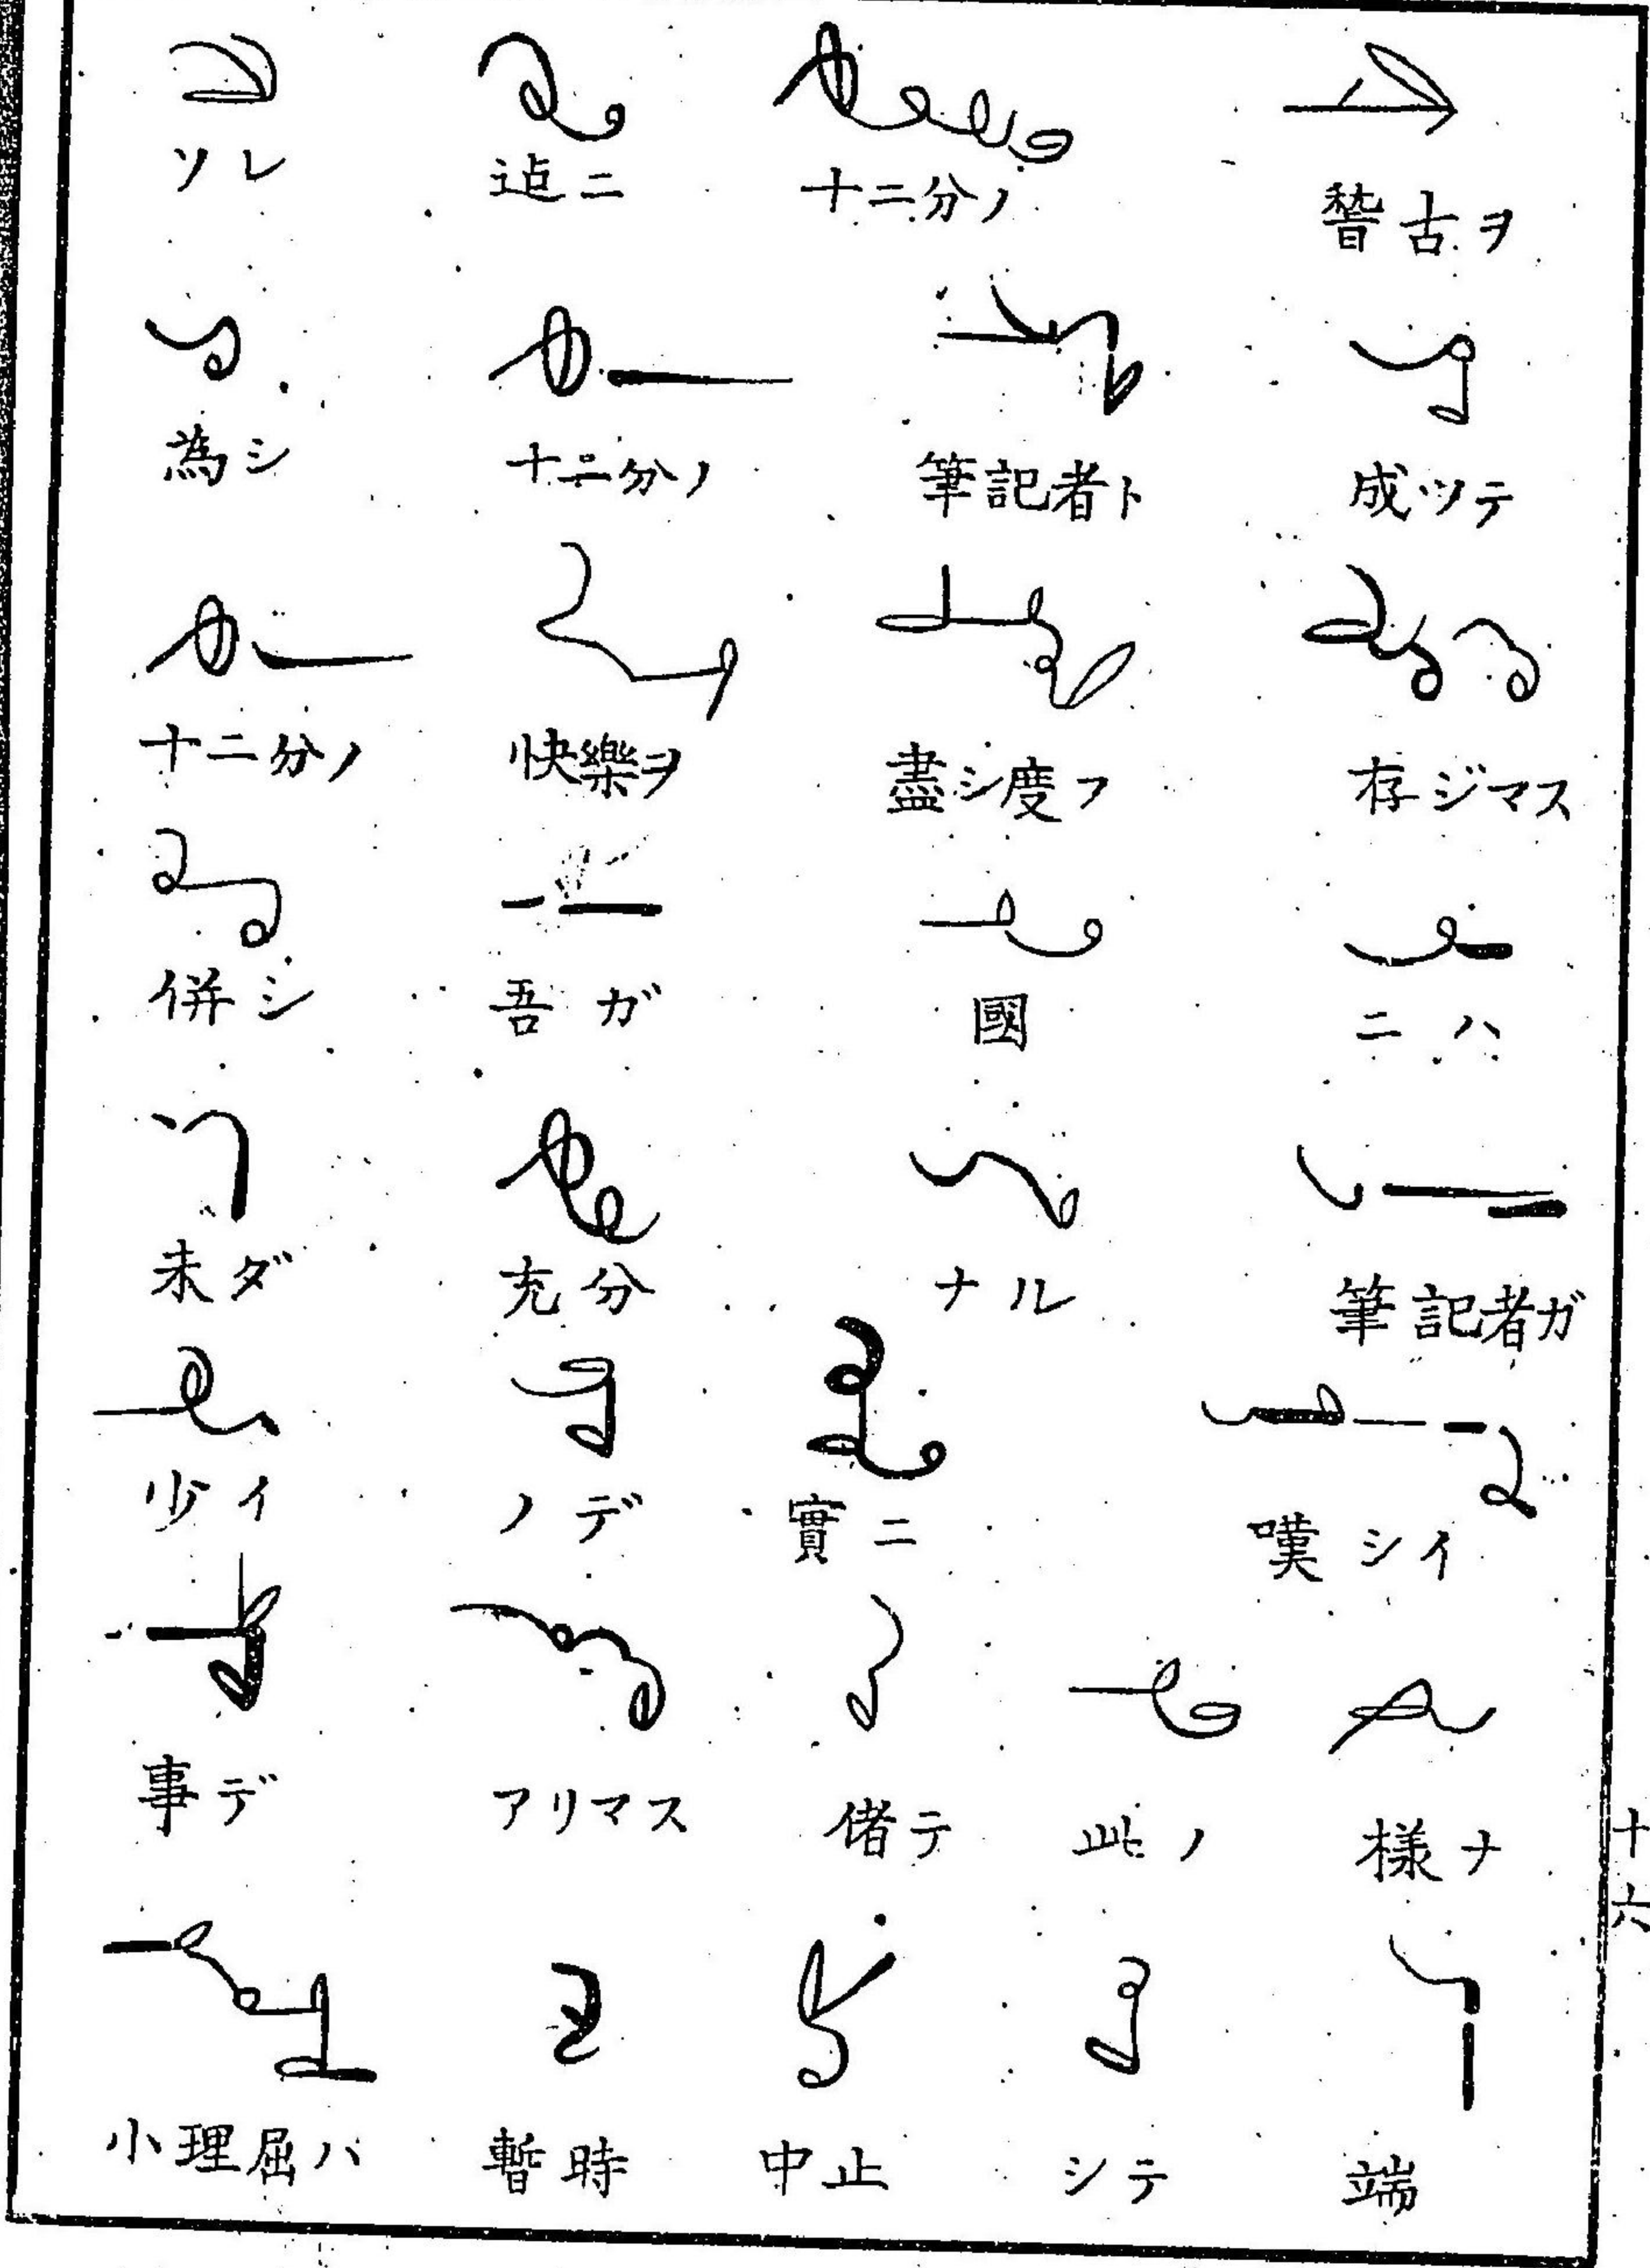 ソレ 迠ニ 十二分ノ 稽古ヲ
為シ 十二分ノ 筆記者ト 成ツテ
十二分ノ 快樂ヲ 盡シ度フ 存ジマス
併シ 吾ガ 國 ニハ
未ダ 充分 ナル 筆記者ガ
少イ ノデ 實ニ 嘆シイ
事デ アリマス 偖テ 此ノ 様ナ
小理屈ハ 暫時 中止 シテ 端
十六